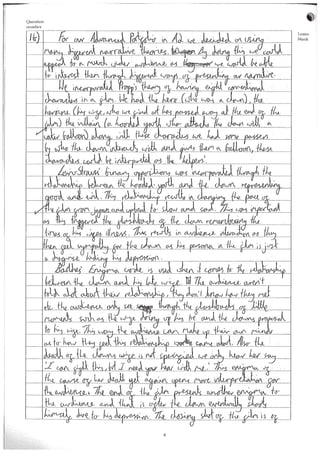 Question
number
Leave
blank
1b)
For our Advanced Portfolio in A2 we decided on using
many different narrative theories. By doing this we could
appeal to a much wider audience as we would be able
to interest them through different ways of presenting our narrative.
We incorporated Propp's theory of having eight conventional
characters in a film. We had the hero (who was a clown), the
heroine (his wife, who we find out has passed away at the end of the
film) the villain (a hooded youth who attacks the clown with a
water balloon) along with these characters we had some passers
by who the clown interacts with and gives them a balloon, these
characters could be interpreted as the 'helpers'.
Levi-Strauss' binary oppositions was incorporated through the
relationship between the hooded youth and the clown representing
good and evil. This relationship results in changing the pace of
the film from and upbeat to slow and sad. This was important
as this triggered the flashbacks of the clown remembering the
times of his wifes illness. This results in audience as they
then get sympathy for the clown as his persona in the film is just
a disguise hiding his depression.
Barthes Enigma code is used when it comes to the relationship
between the clown and his late wife. The audience aren't
told alot about their relationship, they don't know how they met
etc. the audience only see through the flashbacks of little
moments such as the wife of his tie and the clowns proposal
to his wife. This way the audience can make up their own minds
as to how they feel this relationship came about. Also the
death of the clowns wife is not specified we only hear her say
"I can fight this, but I need you here with me". This enigma of
the cause of her death yet again opens more interpretation for
the audience. The end of the film presents another enigma to
the audience and that is after the clown eventually shoots
himself due to his depression. The closing shot of the film is of
4